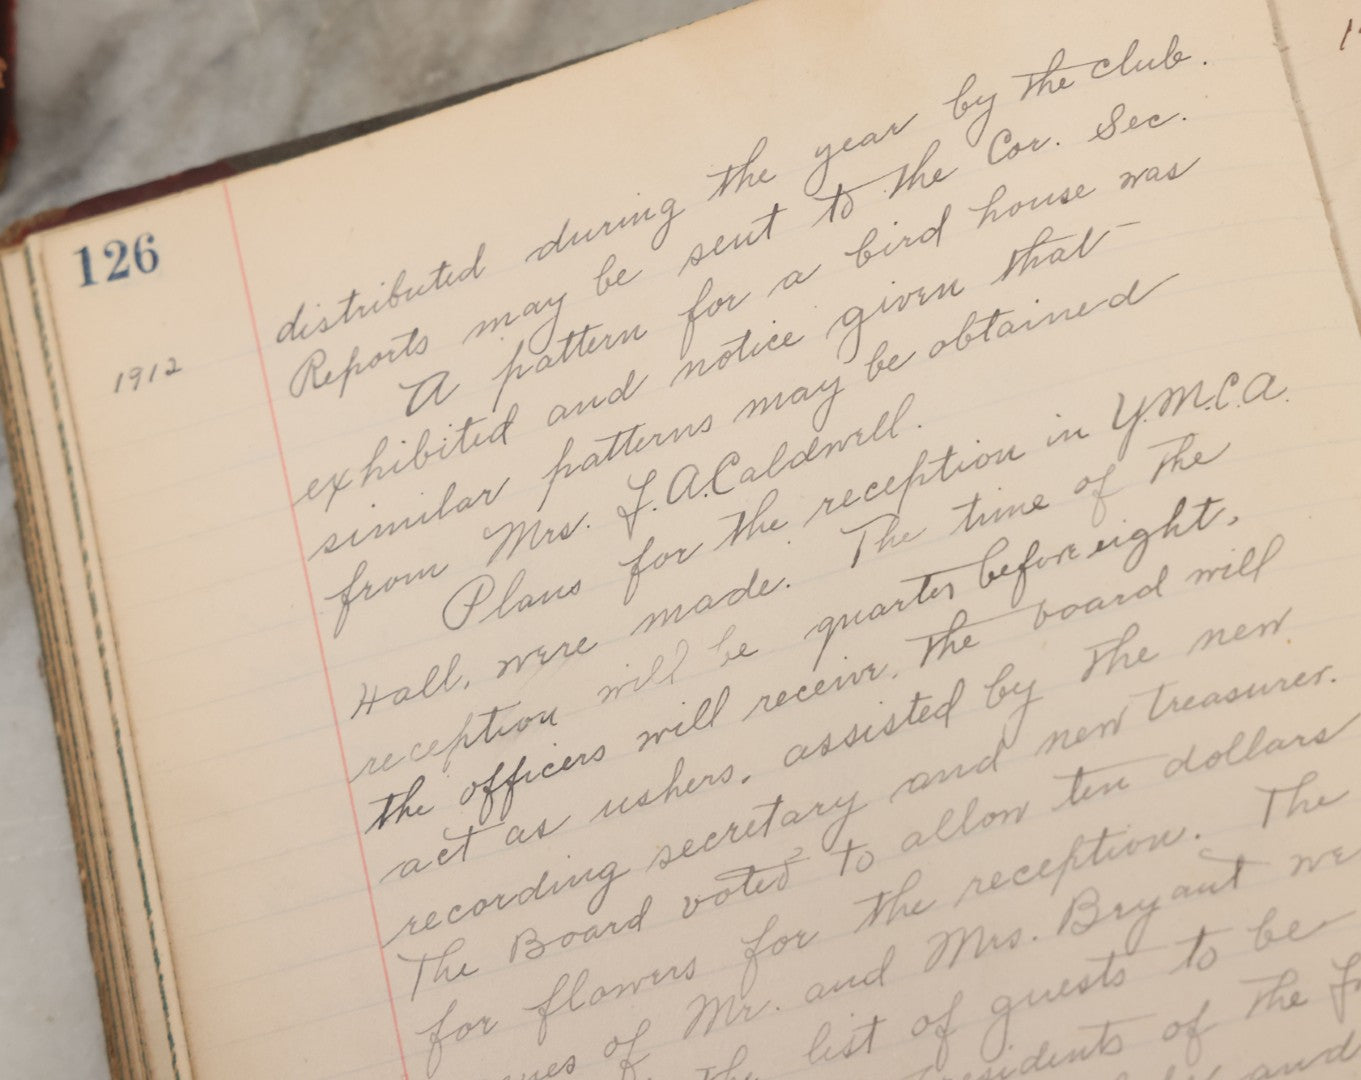 126
1912
distributed during the year by the club.
Reports may be sent to the Cor. Sec.
A pattern for a bird house was
exhibited and notice given that
similar patterns may be obtained
from Mrs. F. A. Caldwell.
Plans for the reception in Y.M.C.A.
Hall, were made. The time of the
reception will be quarter before eight,
the officers will receive, the board will
act as ushers, assisted by the new
recording secretary and new treasurer.
The Board voted to allow ten dollars
for flowers for the reception. The
of Mr. and Mrs. Bryant
the list of guests to be
of the